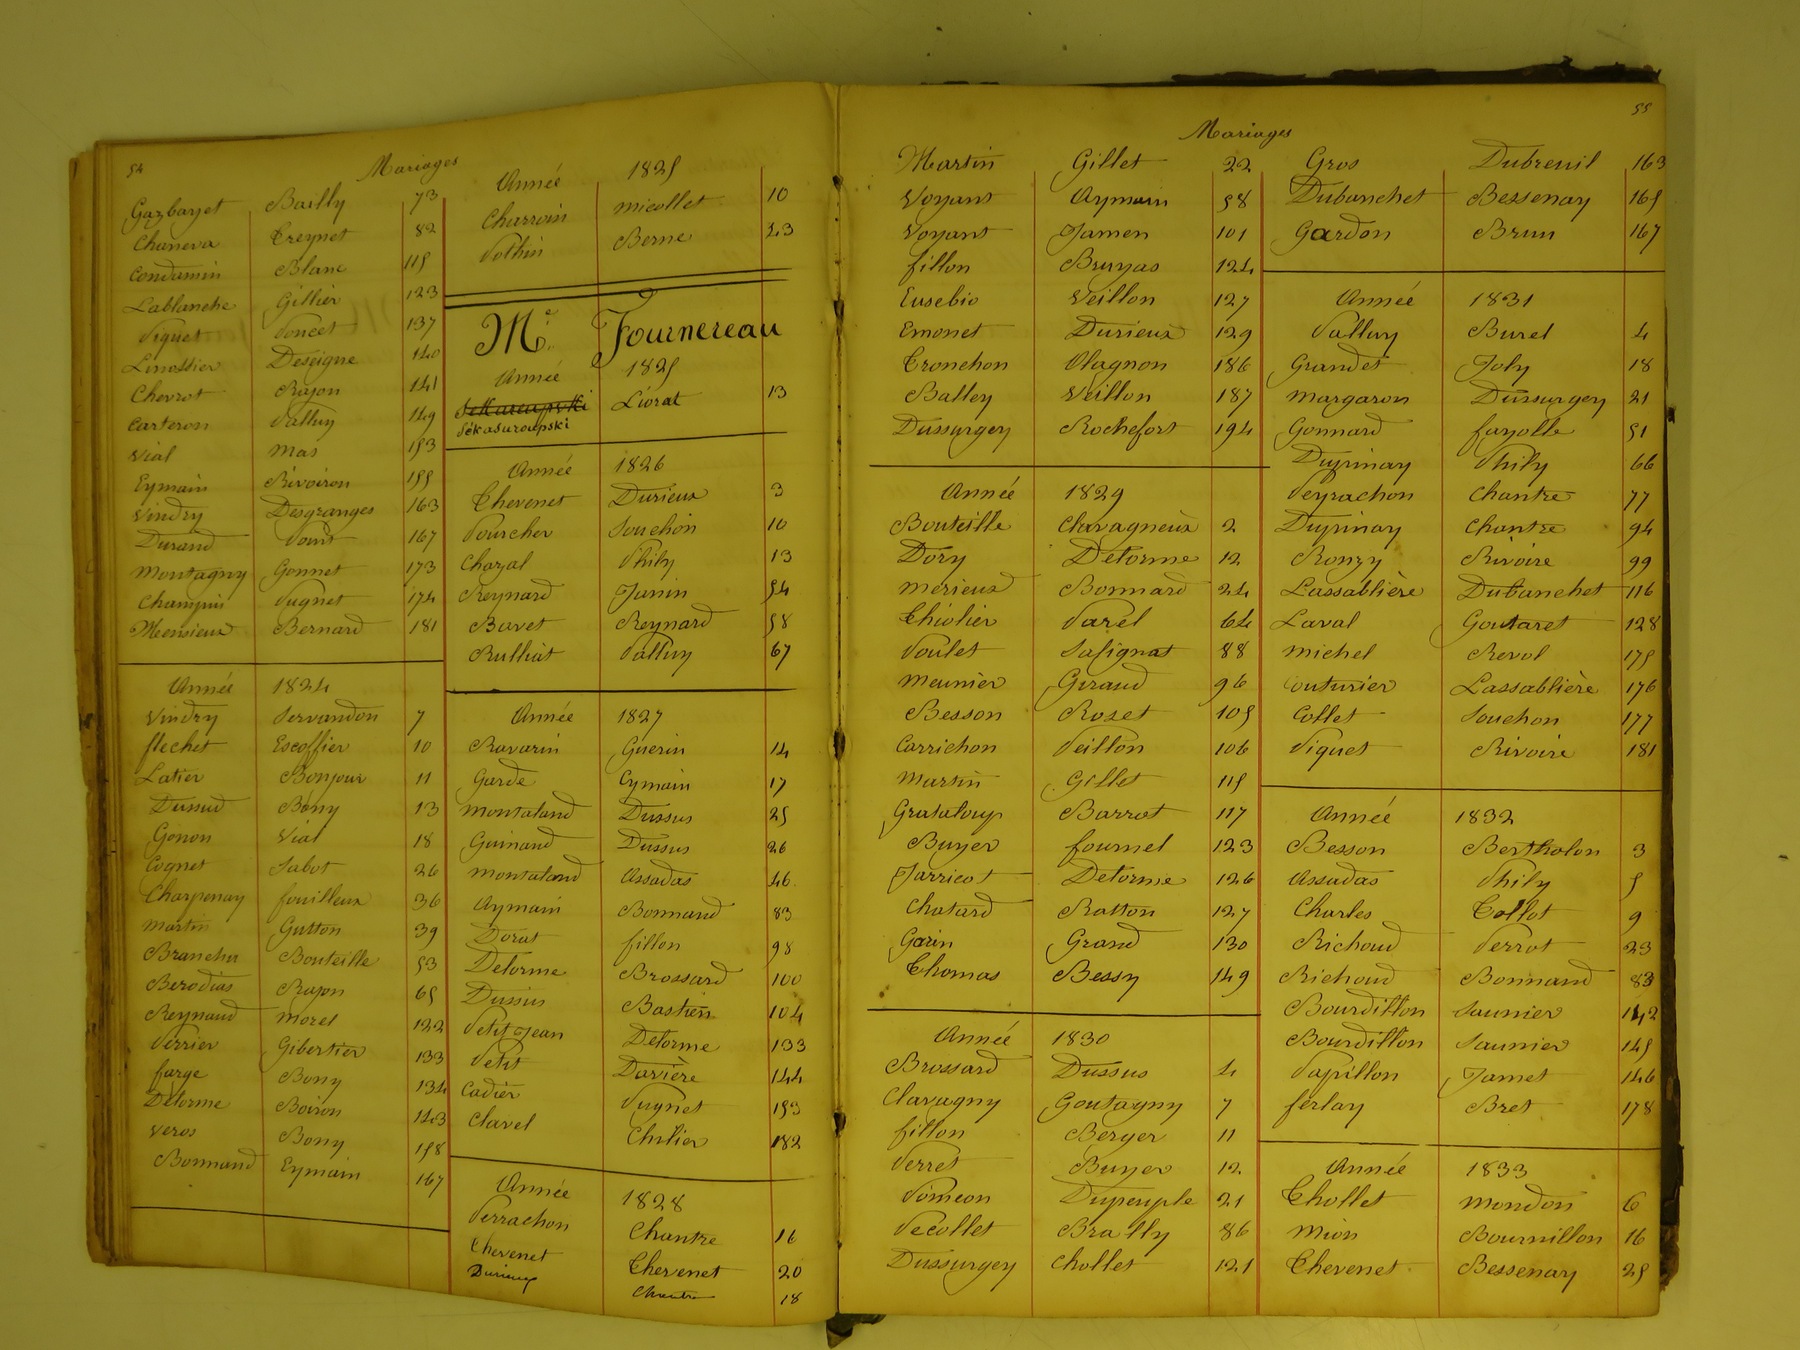 54
Mariages
Gazbayet Bailly 73
Chaneva Creynet 82
Condamin Blanc 115
Lablanche Gillier 123
Piquet Poncet 137
Linossier Deseigne 140
Chevrot Rajon 141
Carteron Palluy 149
Vial Mas 153
Eymain Rivoiron 155
Vindry Desgranges 163
Durand Point 167
Montagny Gonnet 173
Champin Pugnet 174
Meensieux Bernard 181
Année 1824
Vindry Servandon 7
flechet Escoffier 10
Latier Bonjour 11
Dussud Bony 13
Gonon Vial 18
Cognet Sabot 26
Charpenay fouilleux 36
Martin Gutton 39
Branchu Bouteille 53
Berodias Rajon 65
Reynaud Morel 122
Perrier Gibertier 133
farge Bony 134
Delorme Boiron 143
Veros Bony 158
Bonnand Eymain 167
Année 1825
Charroin Micollet 10
Pothin Berne 43
Me. Fournereau
Année 1825
Sékasuroupski Liorat 13
Année 1826
Chevenet Durieux 3
Pourcher Souchon 10
Chazal Phily 13
Reynard Janin 54
Bavet Reynard 58
Rulliat Palluy 67
Année 1827
Ravarin Guerin 14
Garde Eymain 17
Montaland Dussus 25
Guinand Dussus 26
Montaland Assadas 46
Aymain Bonnand 83
Dorat fillon 98
Delorme Brossard 100
Dussus Bastien 104
Petit Jean Delorme 133
Petit Darière 144
Cadier Pugnet 153
Clavel Chilier 182
Année 1828
Perrachon Chantre 16
Chevenet Chevenet 20
Durieux Chantre 18
55
Mariages
Martin Gillet 22
Voyant Aymain 58
Voyant Jamen 101
fillon Bruyas 124
Eusebio Veillon 127
Emonet Durieux 129
Cronchon Olagnon 186
Balley Veillon 187
Dussurgey Rochefort 194
Année 1829
Bouteille Clavagneux 2
Dory Delorme 12
Merieux Bonnard 24
Chiolier Varel 64
Poulet Salignat 88
Meunier Giraud 96
Besson Rozet 105
Carrichon Veillon 106
Martin Gillet 115
Grataloup Barret 117
Buyer fournel 123
Jarricot Delorme 126
Chatard Ratton 127
Garin Grand 130
Thomas Bessy 149
Année 1830
Brossard Dussus 4
Clavagny Goutagny 7
fillon Berger 11
Perret Buyer 12
Poméon Dupeuple 21
Pecollet Brally 86
Dussurgey Chollet 121
Gros Dubreuil 163
Dubanchet Bessenay 165
Gardon Brun 167
Année 1831
Palluy Burel 4
Grandet Joly 18
Margaron Dussurgey 21
Gonnard fayolle 51
Dupinay Phily 66
Peyrachon Chantre 77
Dupinay Chantre 94
Ronzy Rivoire 99
Lassablière Dubanchet 116
Laval Goutaret 128
Michel Revol 175
Couturier Lassablière 176
Collet Souchon 177
Piquet Rivoire 181
Année 1832
Besson Bertholon 3
Assadas Phily 5
Charles Collot 9
Richoud Perrot 23
Richoud Bonnand 83
Bourdillon Saunier 142
Bourdillon Saunier 145
Papillon Jamet 146
ferlay Bret 178
Année 1833
Chollet Mondon 6
Mion Bournillon 16
Chevenet Bessenay 25